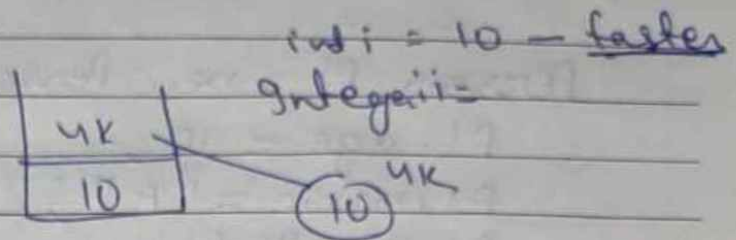 int i = 10 - faster
Integer ii =
4K
10
10 4K